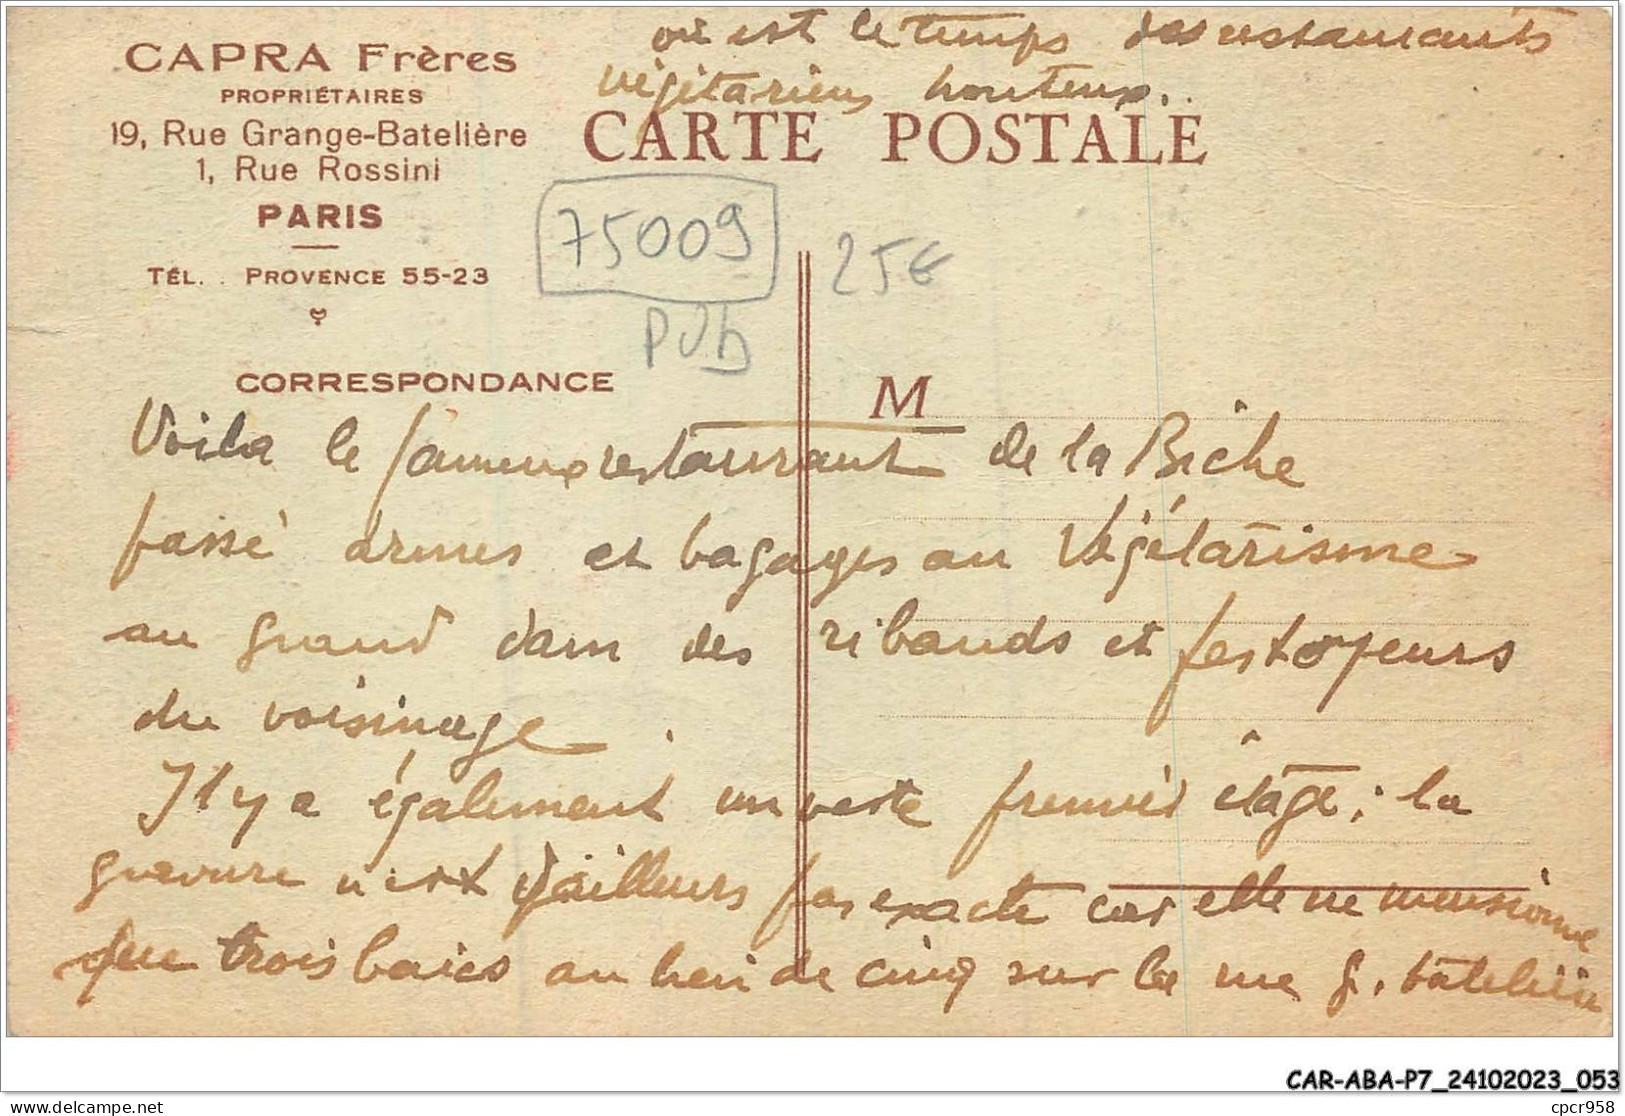 où est le temps des restaurants
végétariens honteux..
CAPRA Frères
PROPRIÉTAIRES
19, Rue Grange-Batelière
1, Rue Rossini
PARIS
TÉL. : PROVENCE 55-23
CARTE POSTALE
75009
25€
PUb
CORRESPONDANCE
M
Voila le fameux restaurant de la Biche
passé armes et bagages au Végétarisme
au grand dam des ribauds et festoyeurs
du voisinage.
Il y a également un vaste premier étage ; la
gravure n'est d'ailleurs pas exacte car elle ne mensionne
que trois baies au lieu de cinq sur la rue G. batelière
CAR-ABA-P7_24102023_053
cpcr958